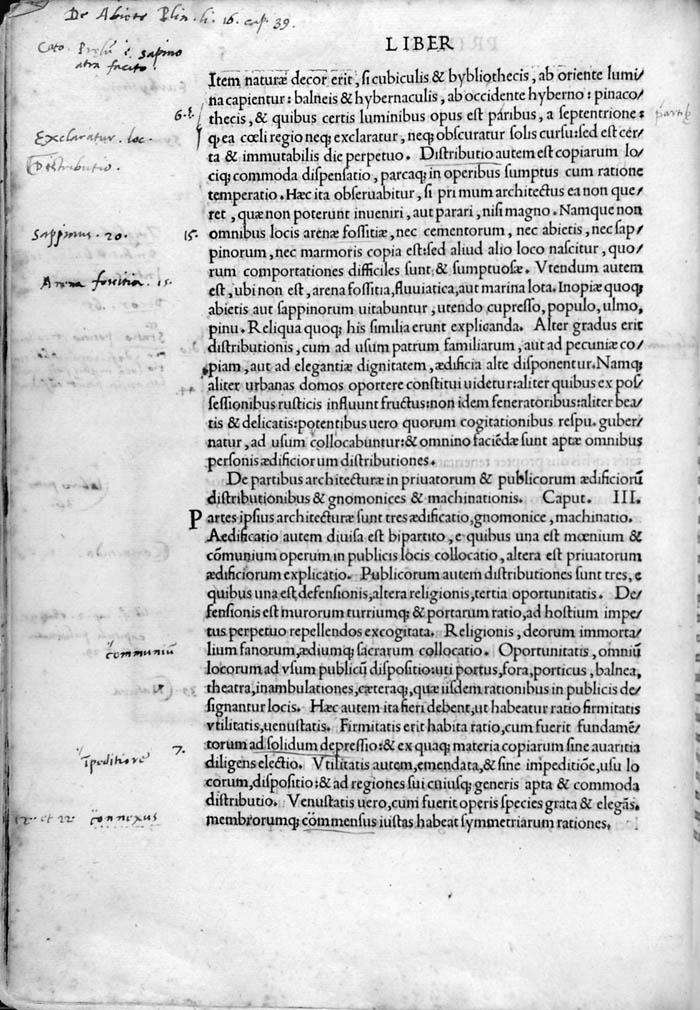 De Abiete Plin. li. 16. cap. 39.
LIBER
Cato. sapino
atra facito.
Item naturæ decor erit, si cubiculis & bybliothecis, ab oriente lumi/
na capientur: balneis & hybernaculis, ab occidente hyberno: pinaco/
thecis, & quibus certis luminibus opus est paribus, a septentrione:
qꝫ ea cœli regio neqꝫ exclaratur, neqꝫ obscuratur solis cursu:sed est cer/
Exclaratur. loc.
ta & immutabilis die perpetuo. Distributio autem est copiarum lo/
Distributio.
ciqꝫ commoda dispensatio, parcaqꝫ in operibus sumptus cum ratione
temperatio. Hæc ita obseruabitur, si primum architectus ea non que/
ret, quæ non poterunt inueniri, aut parari, nisi magno. Namque non
Sappinus. 20.
15.
omnibus locis arenæ fossitiæ, nec cementorum, nec abietis, nec sap/
pinorum, nec marmoris copia est:sed aliud alio loco nascitur, quo/
rum comportationes difficiles sunt & sumptuosæ. Vtendum autem
Arena 15.
est, ubi non est, arena fossitia, fluuiatica, aut marina lota. Inopiæ quoqꝫ
abietis aut sappinorum uitabuntur, utendo cupresso, populo, ulmo,
pinu. Reliqua quoqꝫ his similia erunt explicanda. Alter gradus erit
distributionis, cum ad usum patrum familiarum, aut ad pecuniæ co/
piam, aut ad elegantiæ dignitatem, ædificia alte disponentur. Namqꝫ
aliter urbanas domos oportere constitui uidetur:aliter quibus ex pos/
sessionibus rusticis influunt fructus:non idem feneratoribus:aliter bea/
tis & delicatis:potentibus uero quorum cogitationibus respu. guber/
natur, ad usum collocabuntur:& omnino faciēdæ sunt aptæ omnibus
personis ædificiorum distributiones.
De partibus architecturæ in priuatorum & publicorum ædificiorū
distributionibus & gnomonices & machinationis. Caput. III.
Partes ipsius architecturæ sunt tres ædificatio, gnomonice, machinatio.
Aedificatio autem diuisa est bipartito, e quibus una est mœnium &
cōmunium operum in publicis locis collocatio, altera est priuatorum
ædificiorum explicatio. Publicorum autem distributiones sunt tres, e
quibus una est defensionis, altera religionis, tertia oportunitatis. De/
fensionis est murorum turriumqꝫ & portarum ratio, ad hostium impe/
tus perpetuo repellendos excogitata. Religionis, deorum immorta/
communiū
lium fanorum, ædiumqꝫ sacrarum collocatio. Oportunitatis, omniū
locorum ad vsum publicū dispositio:uti portus, fora, porticus, balnea,
theatra, inambulationes, cæteraqꝫ, quæ iisdem rationibus in publicis de/
signantur locis. Hæc autem ita fieri debent, ut habeatur ratio firmitatis
vtilitatis, uenustatis. Firmitatis erit habita ratio, cum fuerit fundamē/
7.
torum ad solidum depressio:& ex quaqꝫ materia copiarum sine auaritia
diligens electio. Vtilitatis autem, emendata, & sine impeditiōe, usu lo
corum, dispositio:& ad regiones sui cuiusqꝫ generis apta & commoda
distributio. Venustatis uero, cum fuerit operis species grata & elegās.
connexus
membrorumqꝫ cōmensus iustas habeat symmetriarum rationes.